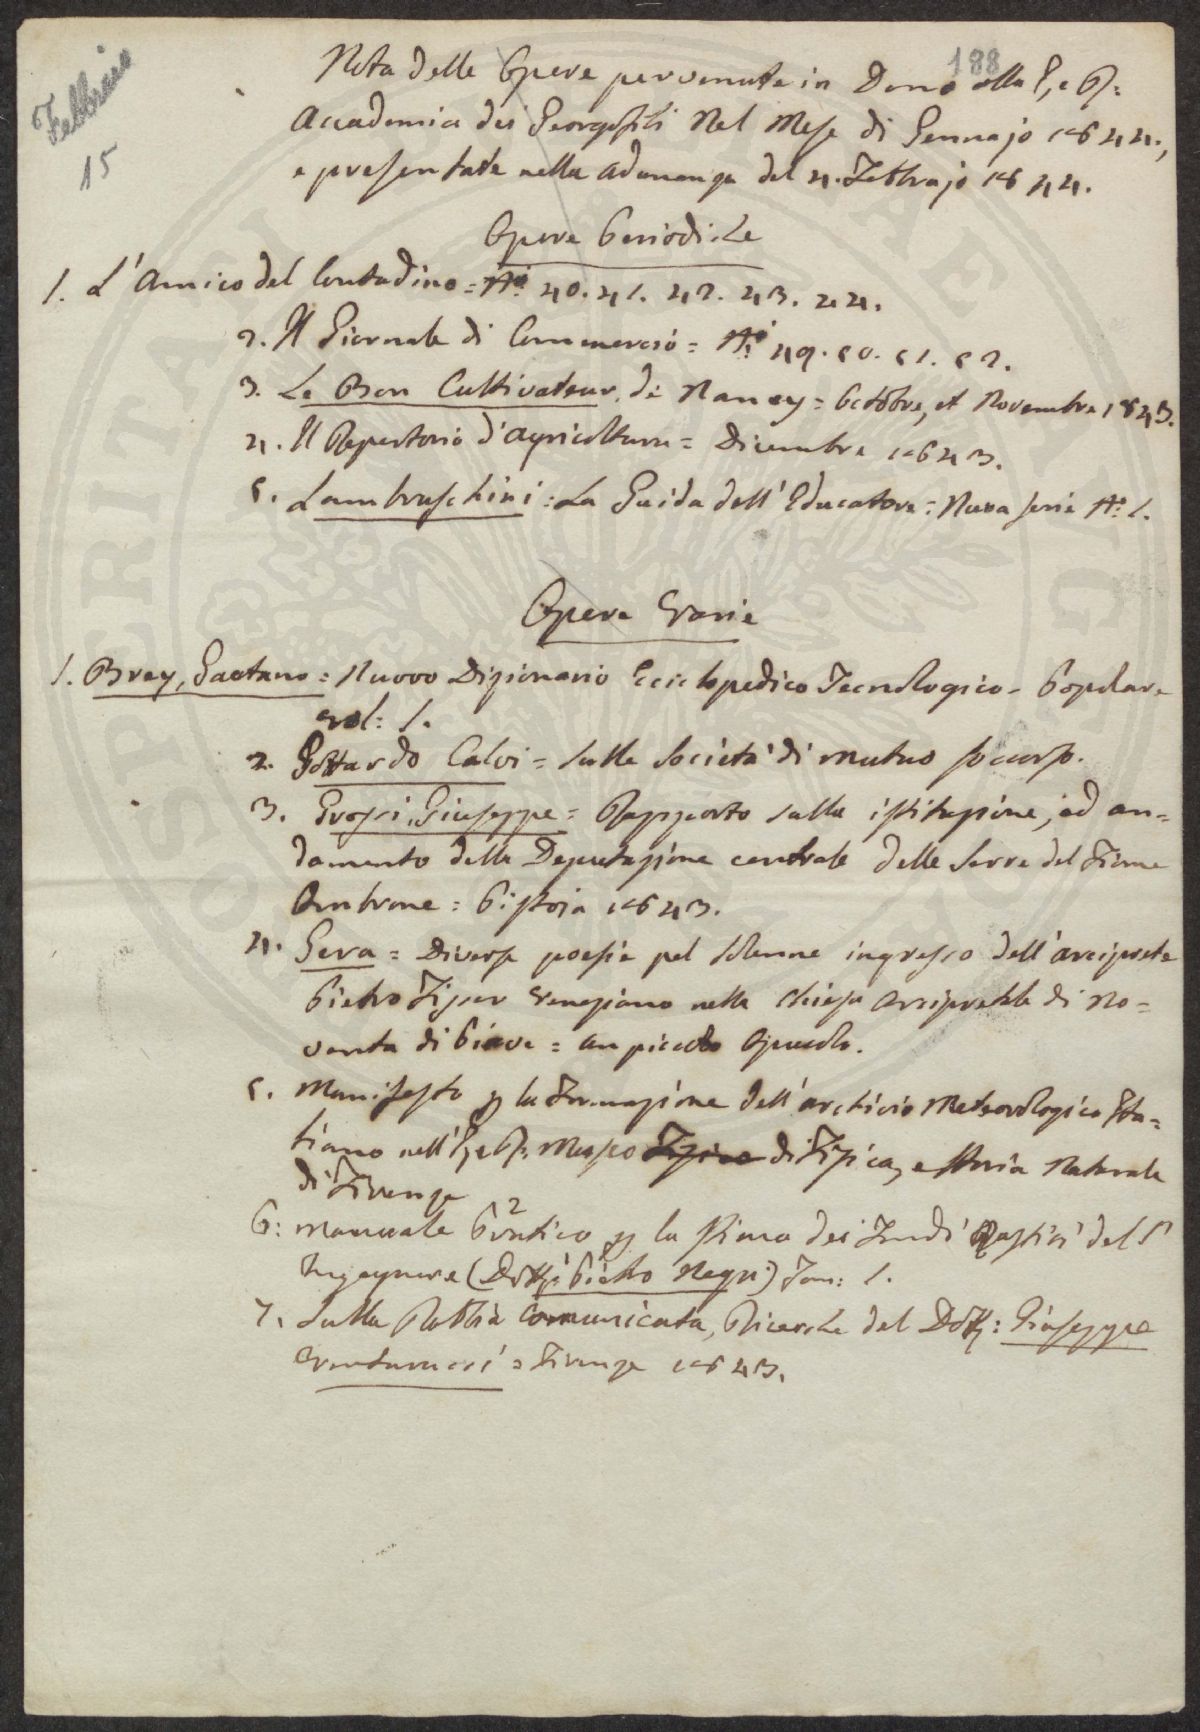 Febbraio
15
188
Nota delle Opere pervenute in Dono alla I, e R:
Accademia dei Georgofili nel Mese di Gennajo 1844.,
e presentate nella adunanza del 4. Febbrajo 1844.
Opere Periodiche
1. L'Amico del Contadino = Ni. 40. 41. 42. 43. 44.
2. Il Giornale di Commercio = Ni. 49. 50. 51. 52.
3. Le Bon Cultivateur, de Nancy = Octobre, et Novembre 1843.
4. Il Repertorio d'Agricoltura = Dicembre 1843.
5. Lambruschini: La Guida dell'Educatore = Nuova serie No. 1.
Opere Varie
1. Brey, Gaetano = Nuovo Dizionario Enciclopedico Tecnologico-Popolare
vol: 1.
2. Gottardo Calvi = Sulle Società di mutuo soccorso.
3. Grossi, Giuseppe = Rapporto sulla istituzione, ed an=
damento della Deputazione centrale delle Serre del Fiume
Ombrone = Pistoja 1843.
4. Gera = Diverse poesie pel solenne ingresso dell'arciprete
Pietro Veneziano nella Chiesa Arcipretale di No=
venta di Piave = un piccolo Opuscolo.
5. Manifesto p la formazione dell'archivio Meteorologico Ita=
liano nell'I, e R. Museo Fisico di Fisica, e Storia Naturale
di Firenze
6: Manuale Pratico p la stima dei Fondi Rustici del S
Ingegnere (Dott. Pietro Negri) Tom: 1.
7. Sulla Rabbia comunicata, Ricerche del Dott: Giuseppe
Venturucci = Firenze 1843.